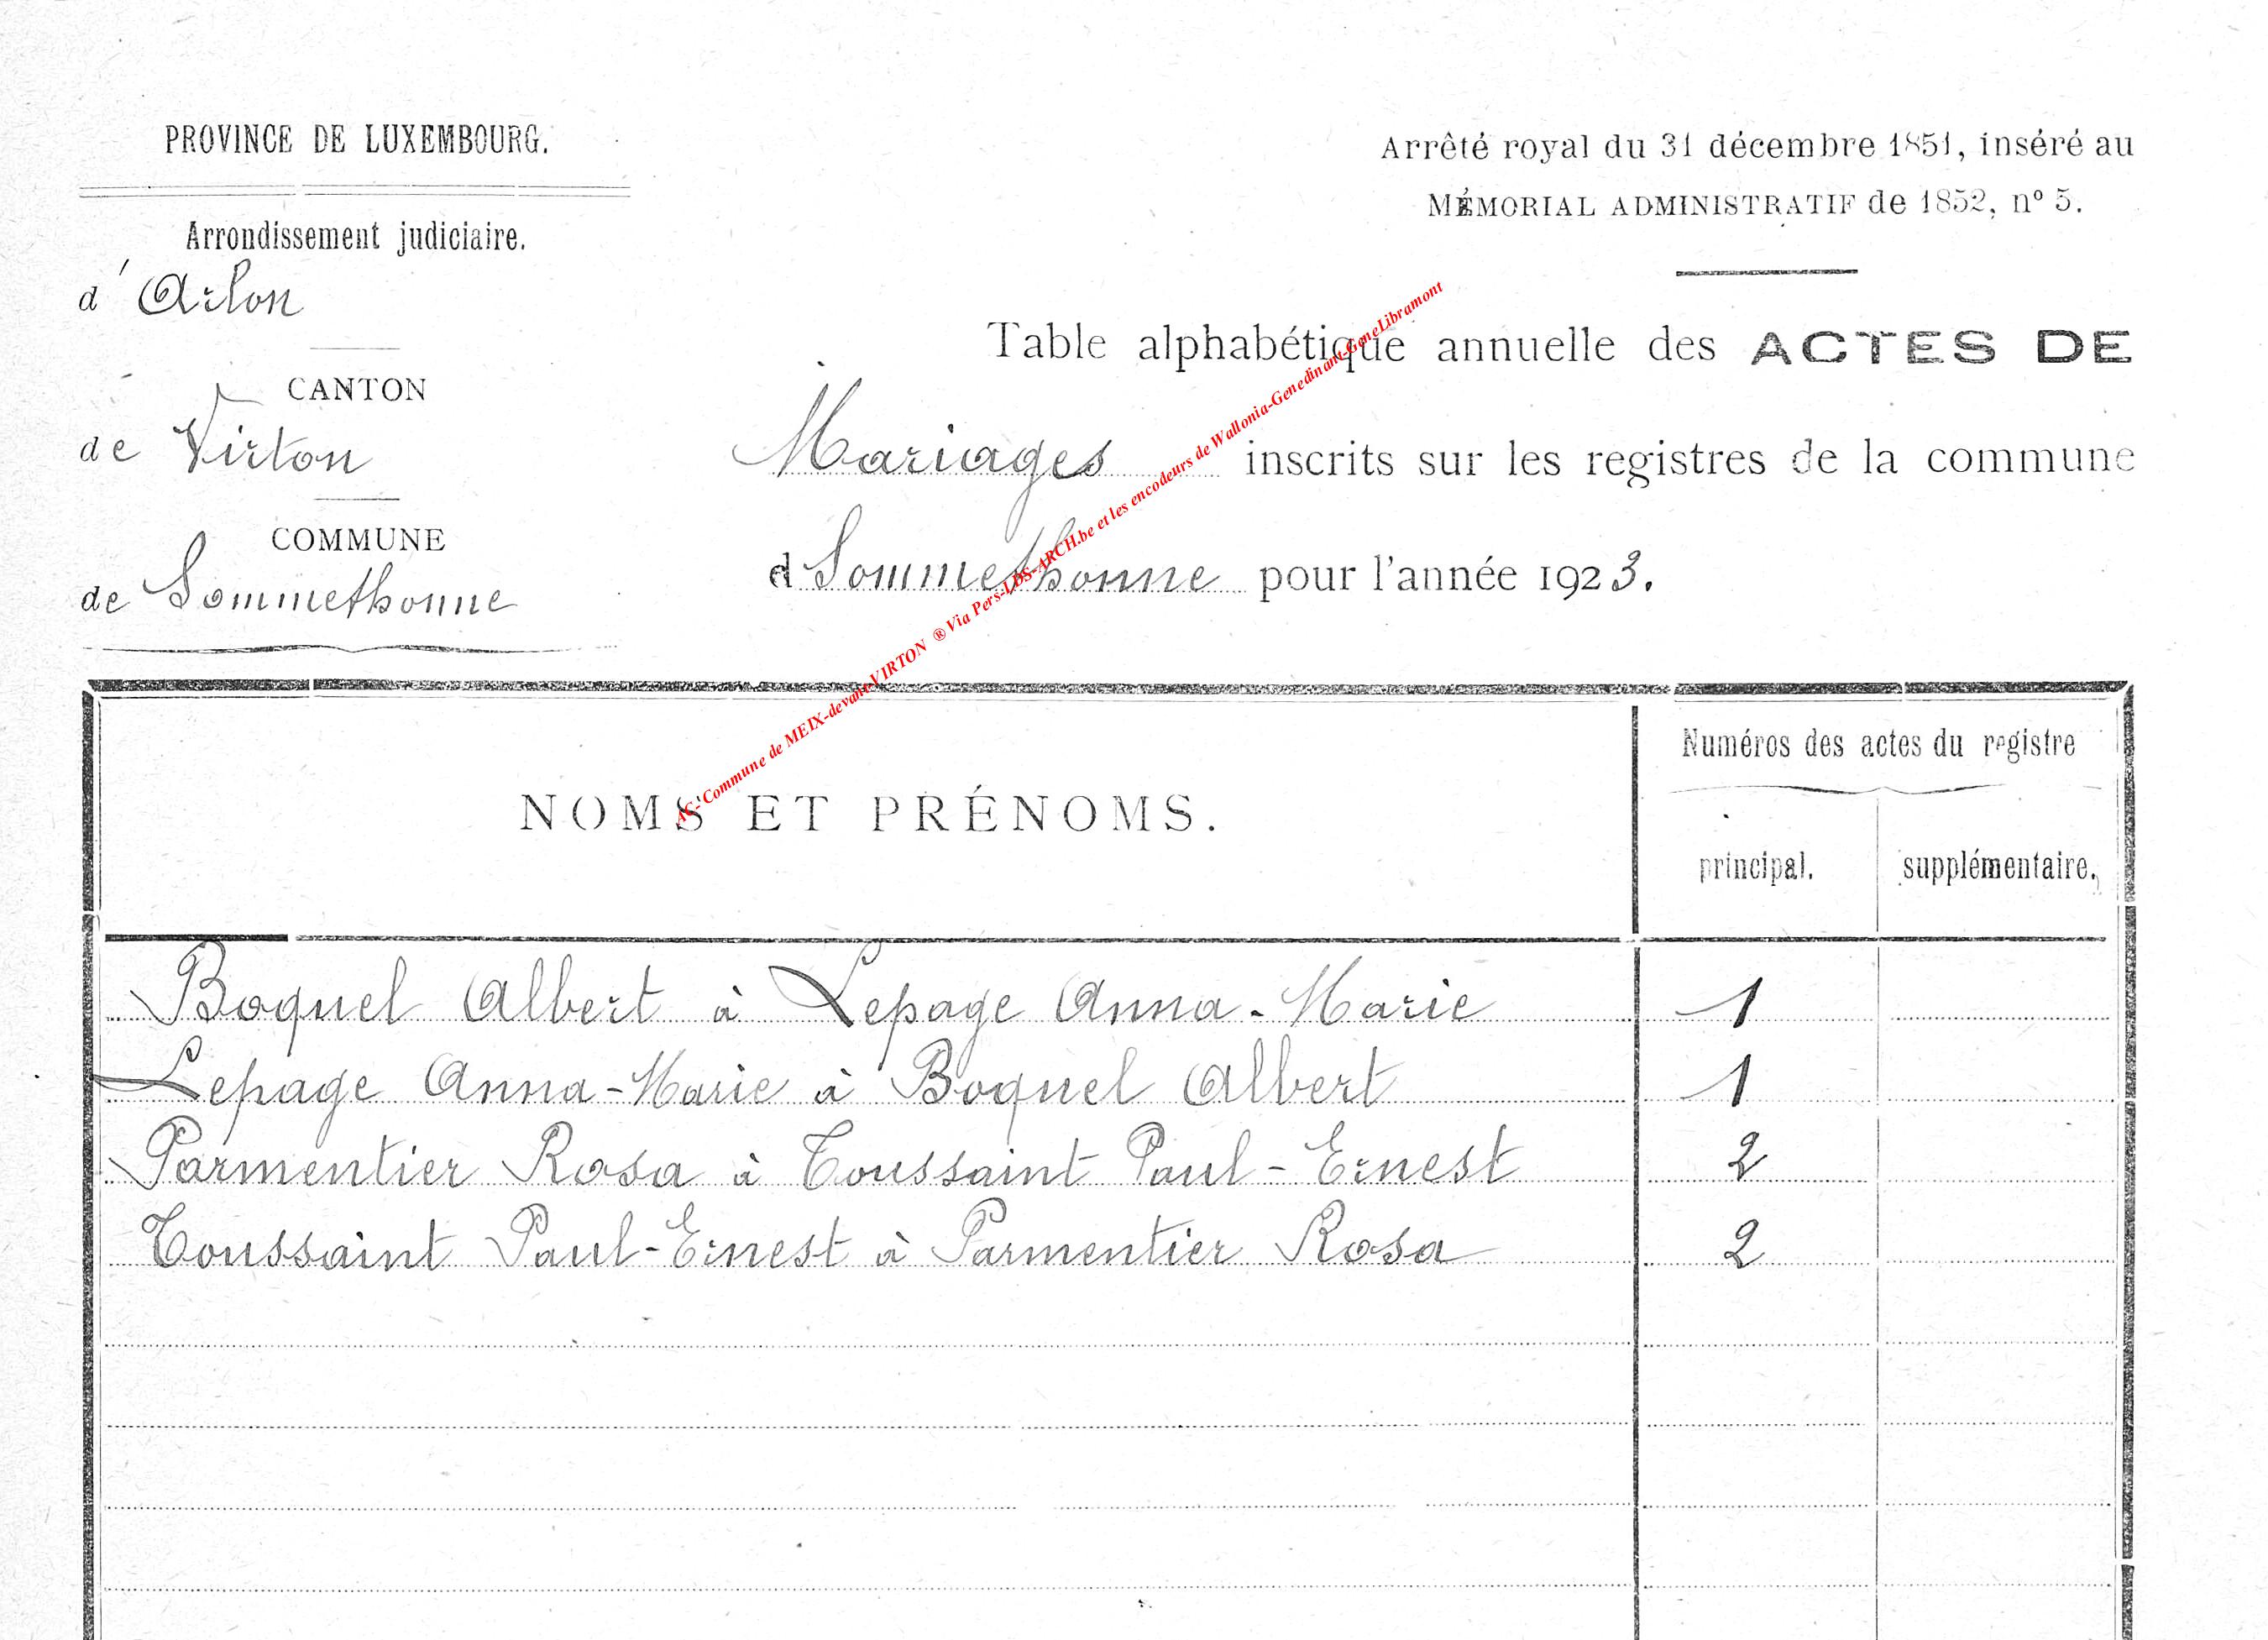 PROVINCE DE LUXEMBOURG.
Arrondissement judiciaire.
d'Arlon
CANTON
de Virton
COMMUNE
de Sommethonne
Arrêté royal du 31 décembre 1851, inséré au
MÉMORIAL ADMINISTRATIF de 1852, nº 5.
Table alphabétique annuelle des ACTES DE
Mariages inscrits sur les registres de la commune
d Sommethonne pour l'année 1923.
AC- Commune de MEIX-devant-VIRTON ® Via Pers-LDS-ARCH.be et les encodeurs de Wallonia-Genedinant-GeneLibramont
NOMS ET PRÉNOMS.
Numéros des actes du registre
principal. supplémentaire.
Boquel Albert à Lepage Anna-Marie 1
Lepage Anna-Marie à Boquel Albert 1
Parmentier Rosa à Toussaint Paul-Ernest 2
Toussaint Paul-Ernest à Parmentier Rosa 2